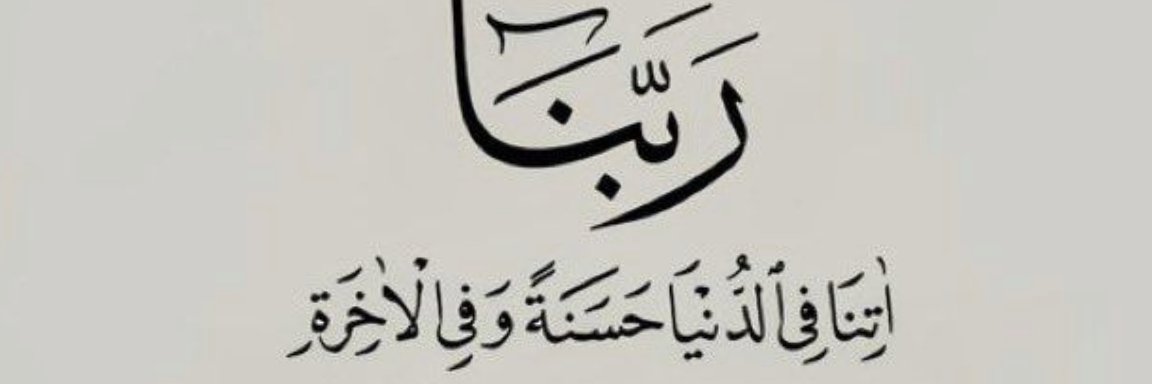 رَبَّنَا
اٰتِنَا فِى ٱلدُّنْيَا حَسَنَةً وَفِى الْاٰخِرَةِ